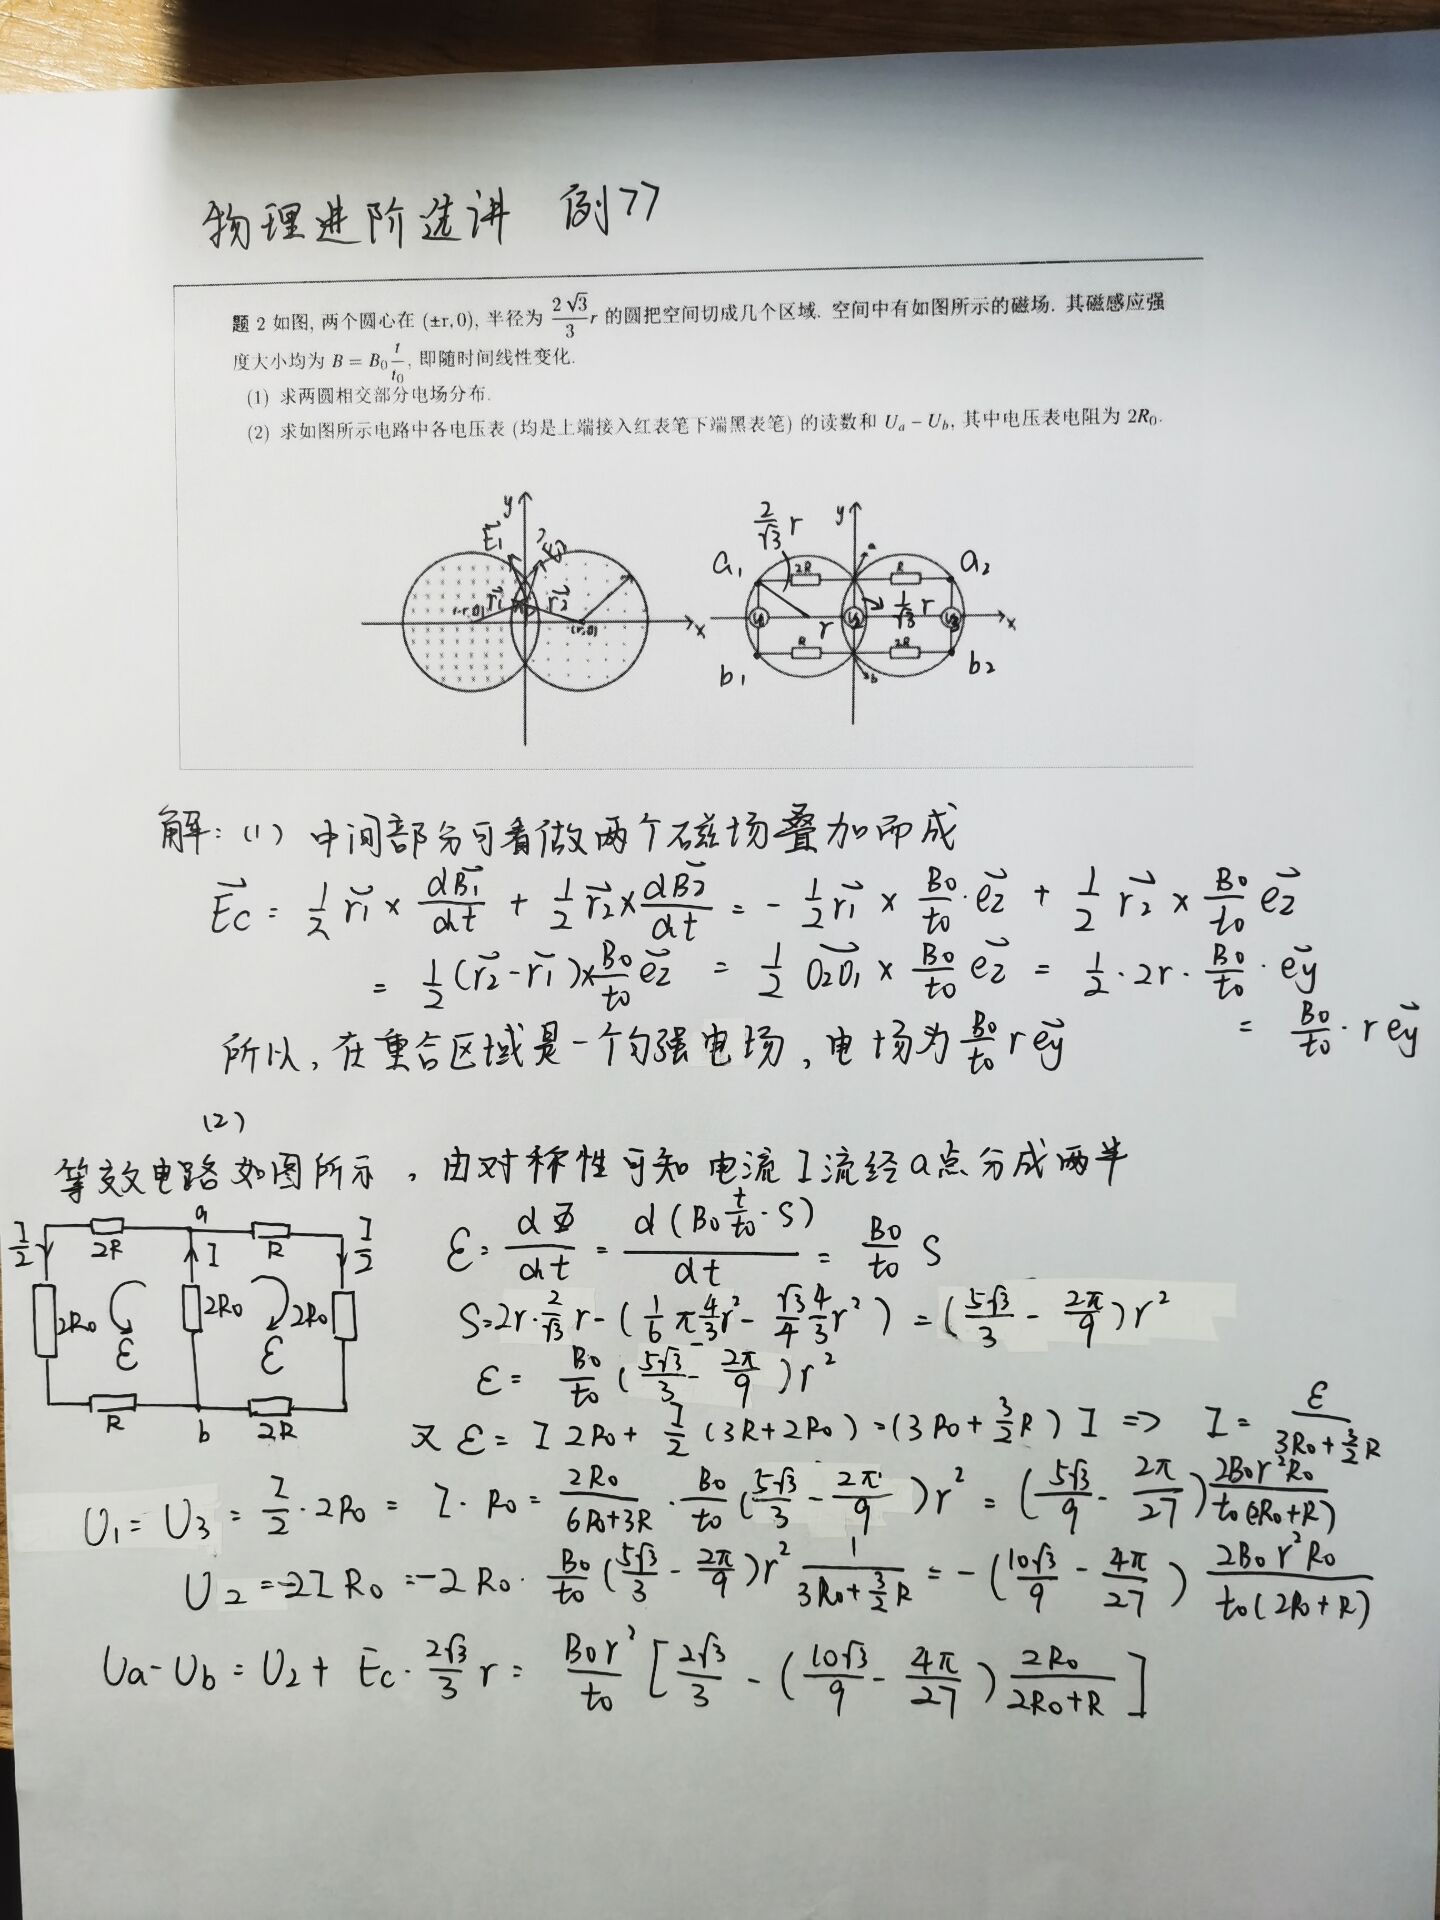 物理进阶选讲 例77
题 2 如图, 两个圆心在 (±r, 0), 半径为 \frac{2\sqrt{3}}{3}r 的圆把空间切成几个区域. 空间中有如图所示的磁场. 其磁感应强
度大小均为 B = B₀\frac{t}{t₀}, 即随时间线性变化.
(1) 求两圆相交部分电场分布.
(2) 求如图所示电路中各电压表 (均是上端接入红表笔下端黑表笔) 的读数和 U_a − U_b, 其中电压表电阻为 2R₀.
y
\vec{E_1}
\vec{r_1} \vec{r_2}
(-r,0) (r,0)
x
\frac{2}{\sqrt{3}}r y
a₁ 2R a R a₂
r \frac{1}{\sqrt{3}}r x
R 2R
b₁ b b₂
解: (1) 中间部分可看做两个磁场叠加而成
\vec{E_c} = \frac{1}{2}\vec{r_1} × \frac{d\vec{B_1}}{dt} + \frac{1}{2}\vec{r_2} × \frac{d\vec{B_2}}{dt} = - \frac{1}{2}\vec{r_1} × \frac{B₀}{t₀} · \vec{e_z} + \frac{1}{2}\vec{r_2} × \frac{B₀}{t₀}\vec{e_z}
= \frac{1}{2}(\vec{r_2} - \vec{r_1}) × \frac{B₀}{t₀}\vec{e_z} = \frac{1}{2}\vec{O_2O_1} × \frac{B₀}{t₀}\vec{e_z} = \frac{1}{2} · 2r · \frac{B₀}{t₀} · \vec{e_y}
= \frac{B₀}{t₀} · r\vec{e_y}
所以, 在重合区域是一个匀强电场, 电场为 \frac{B₀}{t₀}r\vec{e_y}
(2)
等效电路如图所示, 由对称性可知电流I流经a点分成两半
a
\frac{I}{2} 2R I R \frac{I}{2}
2R₀ ε 2R₀ ε 2R₀
R b 2R
ε = \frac{dΦ}{dt} = \frac{d(B₀\frac{t}{t₀}·S)}{dt} = \frac{B₀}{t₀}S
S = 2r·\frac{2}{\sqrt{3}}r - (\frac{1}{6}π\frac{4}{3}r² - \frac{\sqrt{3}}{4}\frac{4}{3}r²) = (\frac{5\sqrt{3}}{3} - \frac{2π}{9})r²
ε = \frac{B₀}{t₀}(\frac{5\sqrt{3}}{3} - \frac{2π}{9})r²
又 ε = I 2R₀ + \frac{I}{2}(3R + 2R₀) = (3R₀ + \frac{3}{2}R)I => I = \frac{ε}{3R₀ + \frac{3}{2}R}
U₁ = U₃ = \frac{I}{2}·2R₀ = I·R₀ = \frac{2R₀}{6R₀+3R}·\frac{B₀}{t₀}(\frac{5\sqrt{3}}{3} - \frac{2π}{9})r² = (\frac{5\sqrt{3}}{9} - \frac{2π}{27})\frac{2B₀r²R₀}{t₀(2R₀+R)}
U₂ = -2IR₀ = -2R₀·\frac{B₀}{t₀}(\frac{5\sqrt{3}}{3} - \frac{2π}{9})r²\frac{1}{3R₀+\frac{3}{2}R} = -(\frac{10\sqrt{3}}{9} - \frac{4π}{27})\frac{2B₀r²R₀}{t₀(2R₀+R)}
Ua-Ub = U₂ + Ec·\frac{2\sqrt{3}}{3}r = \frac{B₀r²}{t₀}[\frac{2\sqrt{3}}{3} - (\frac{10\sqrt{3}}{9} - \frac{4π}{27})\frac{2R₀}{2R₀+R}]